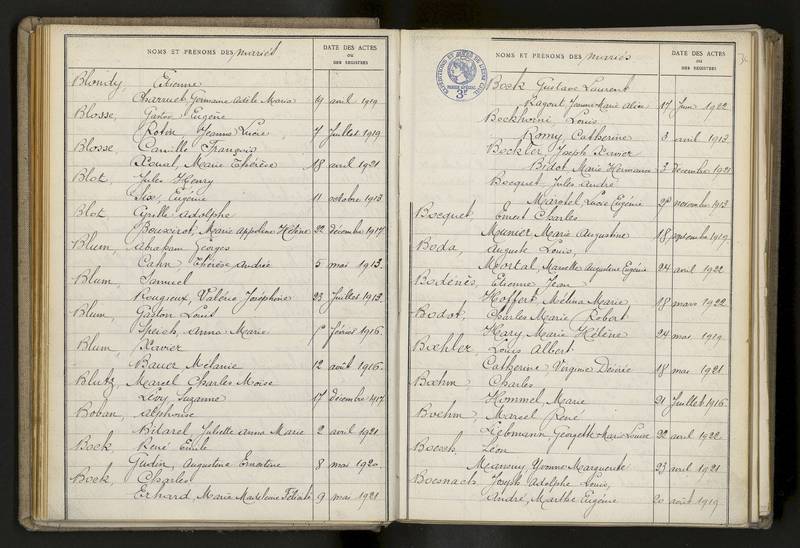 NOMS ET PRÉNOMS DES mariés
DATE DES ACTES
OU
DES REGISTRES
Blondy, Etienne
Charruet Germaine Adèle Maria 19 avril 1919
Blosse, Gaston Eugène
Rotin, Jeanne Lucie 7 Juillet 1919
Blosse, Camille François
Xoual, Marie Thérèse 18 avril 1921
Blot, Jules Henry
Sixe, Eugénie 11 octobre 1913
Blot, Cyrille Adolphe
Bouxirot, Marie Appoline Hélène 22 décembre 1917
Blum, Abraham Georges
Cahn, Thérèse Andrée 5 mai 1913
Blum, Samuel
Rougieux, Valérie Joséphine 23 Juillet 1913
Blum, Gaston Louis
Speich, Anna Marie février 1916
Blum, Xavier
Bauer Mélanie 12 août 1916
Blutz, Marcel Charles Moïse
Lévy Suzanne 17 décembre 1917
Boban, Alphonse
Bitarel, Juliette Anna Marie 2 avril 1921
Bock, René Emile
Gudin, Augustine Ernestine 8 mai 1920
Bock, Charles
Erhard, Marie Madeleine Félicité 9 mai 1921
NOMS ET PRÉNOMS DES mariés
DATE DES ACTES
OU
DES REGISTRES
Bock Gustave Laurent
Ragout Jeanne Marie Aline 17 Juin 1922
Bockhorni Louis
Romy, Catherine 3 avril 1913
Böckler Joseph Xavier
Bidot Marie Hermance 3 décembre 1921
Bocquet Jules André
Marotel Lucie Eugénie novembre 1913
Bocquet, Ernest Charles
Munier Marie Augustine 18 septembre 1919
Boda, Auguste Louis,
Mortal, Marcelle Augustine Eugénie 24 avril 1922
Bodénès, Etienne Jean
Hoffert Mélina Marie 18 mars 1922
Bodot, Charles Marie Robert
Hary Marie Hélène 24 mai 1919
Bœhler, Louis Albert
Catherine Virginie Désirée 18 mai 1921
Bœhm, Charles
Himmel, Marie 21 Juillet 1916
Boehm, Marcel René
Liebmann, Georgette Marie Louise 22 avril 1922
Boesch, Léon
Meanny Yvonne Marguerite 23 avril 1921
Boesnach, Joseph Adolphe Louis,
André, Marthe Eugénie 20 août 1919